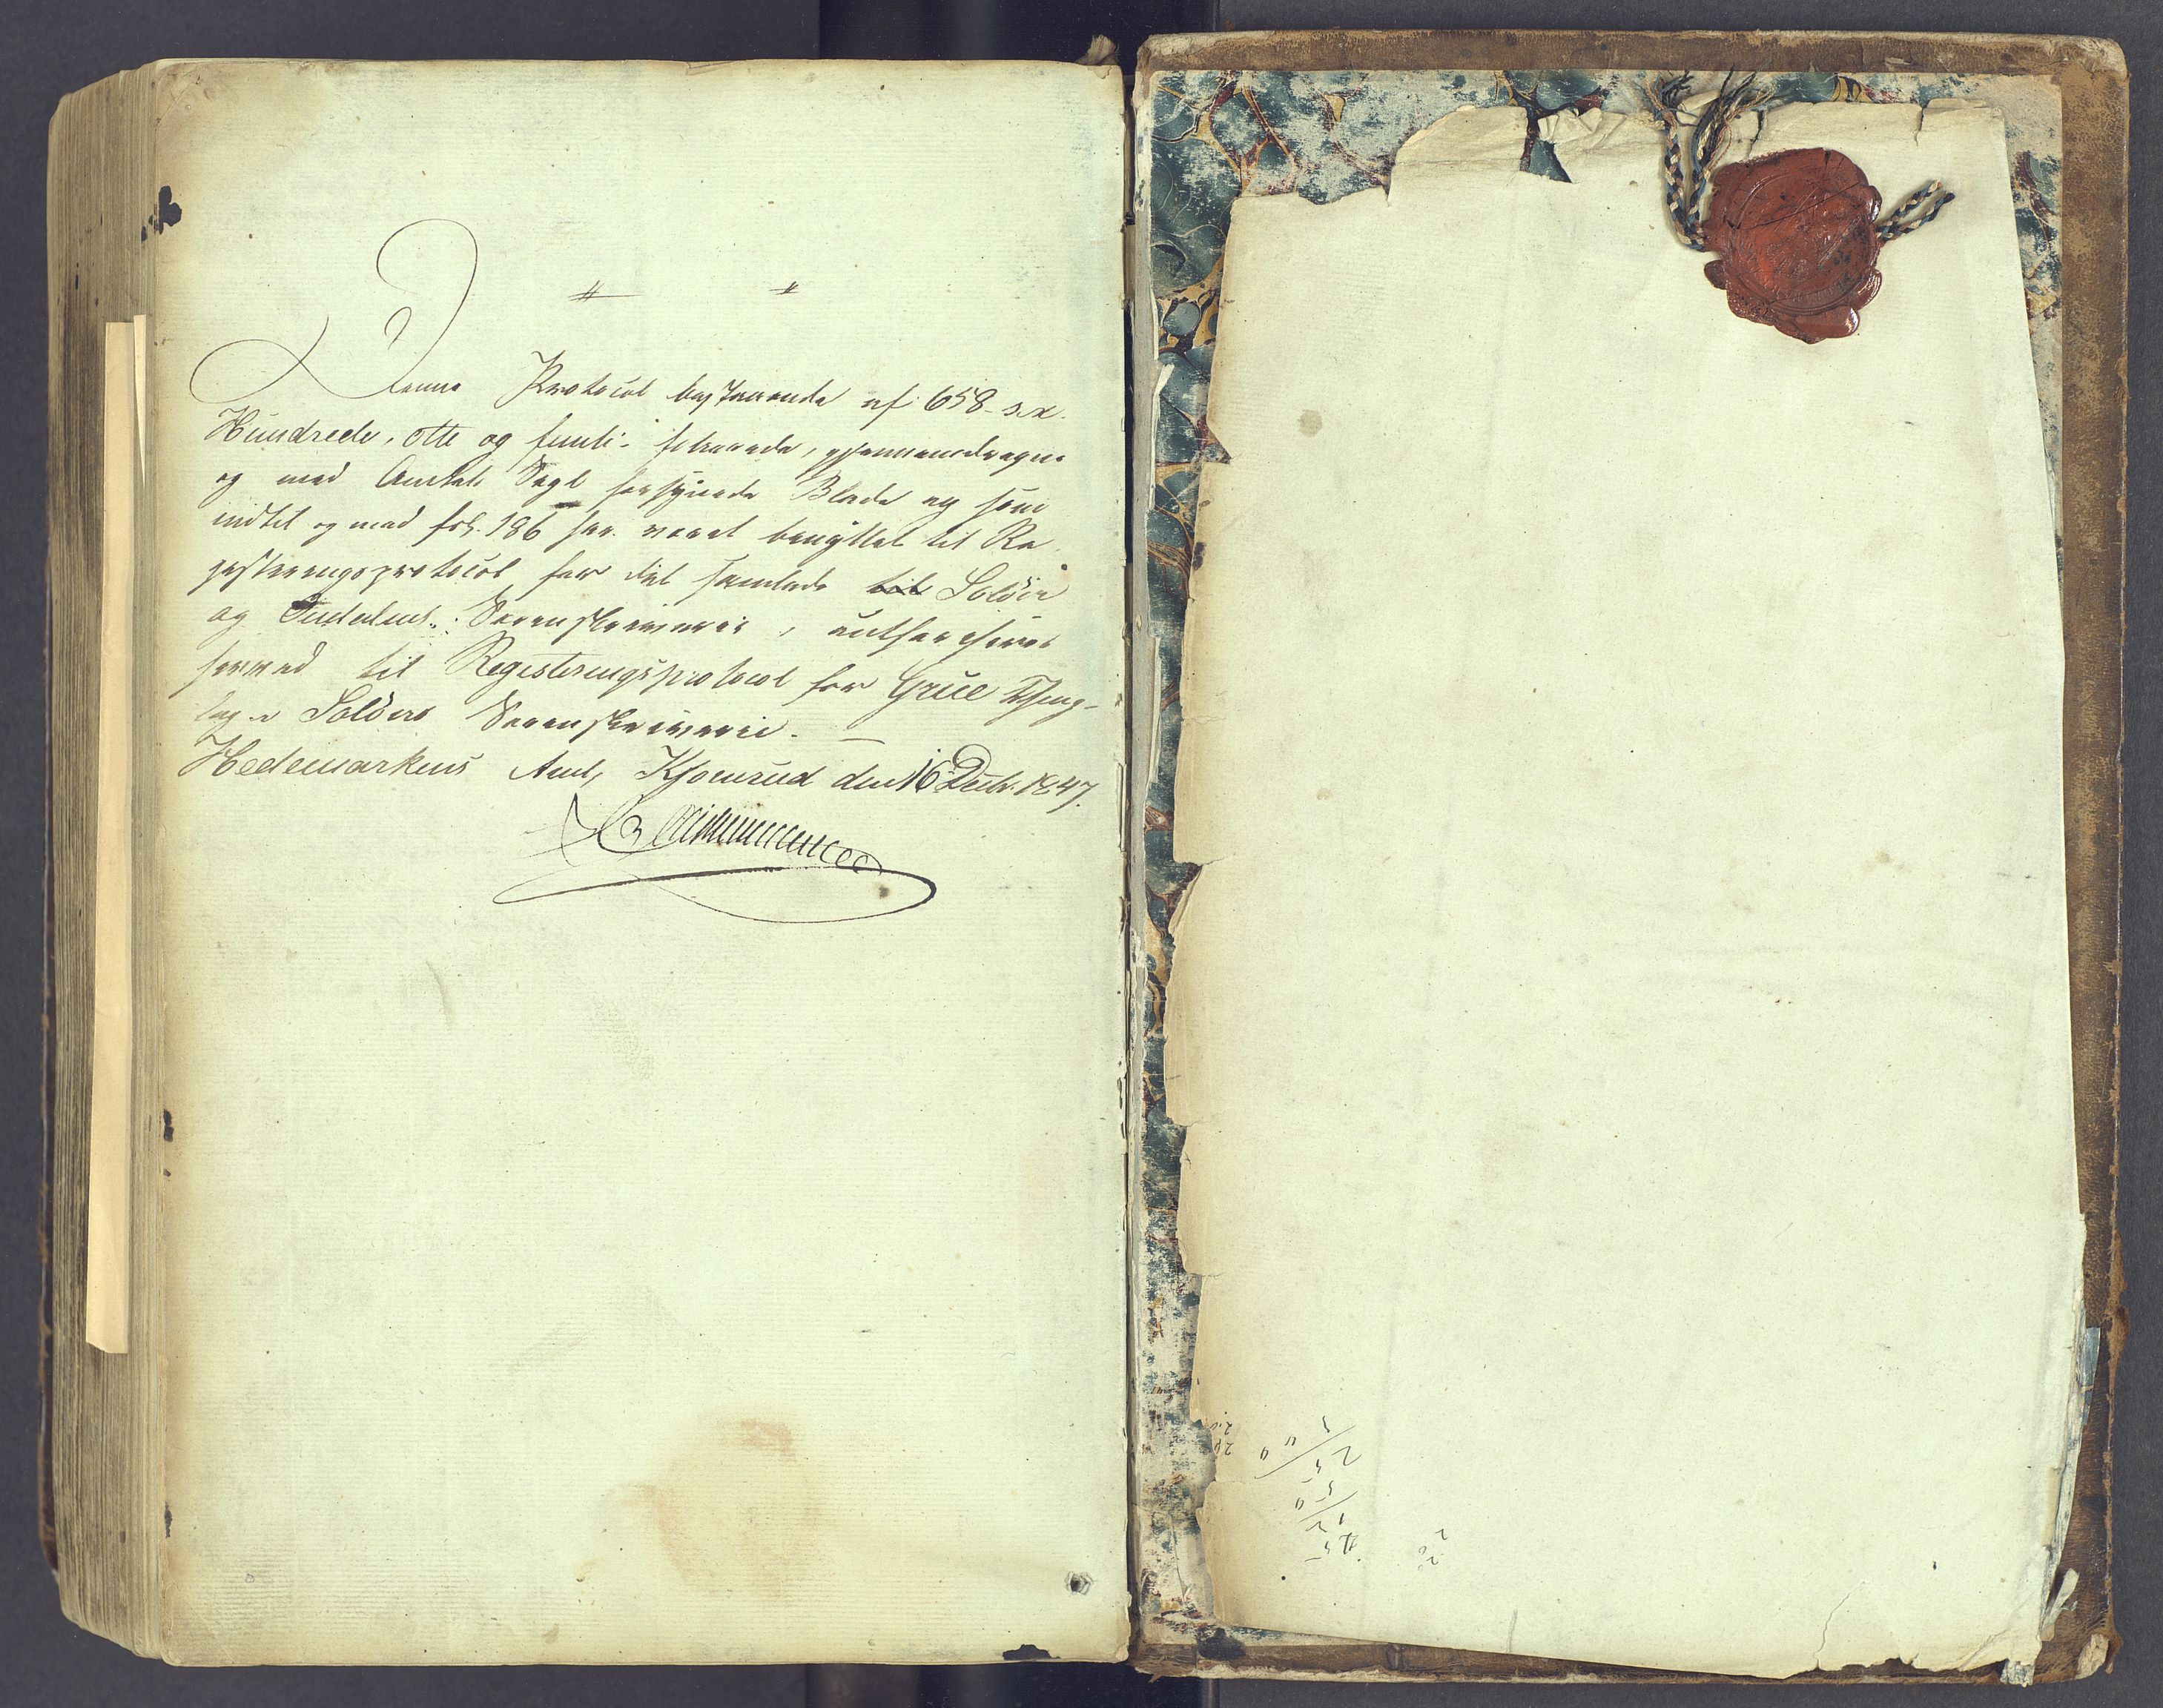 Denne Protocol bestaaende af 658 - sex
Hundrede, otte og femti - folierede, gjennemdragne
og med Amtets Segl forsynede Blade og som
indtil og med fol. 186 har været benyttet til Re-
gistreringsprotocol for det samlede til Solöer
og Oudalens Sorenskriverie, authoriseres
herved til Registeringsprotocol for Grue Thing-
lag i Solöers Sorenskriverie. —
Hedemarkens Amt, Kjonerud den 16 Decbr. 1847.